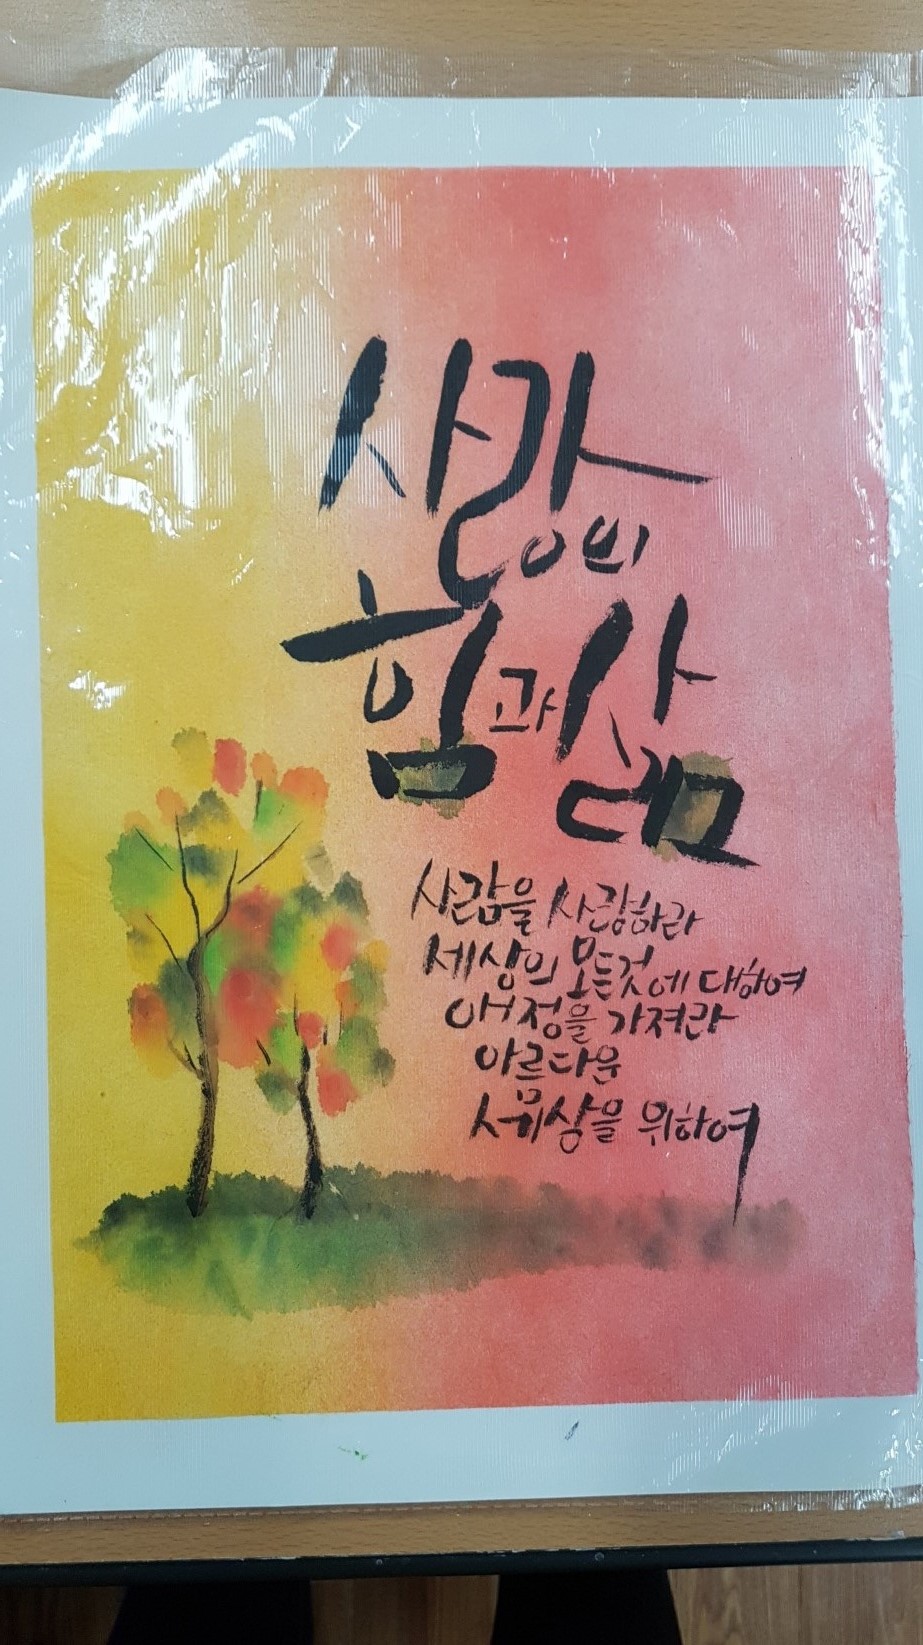 사랑의
힘과 삶
사람을 사랑하라
세상의 모든것에 대하여
애정을 가져라
아름다운
세상을 위하여